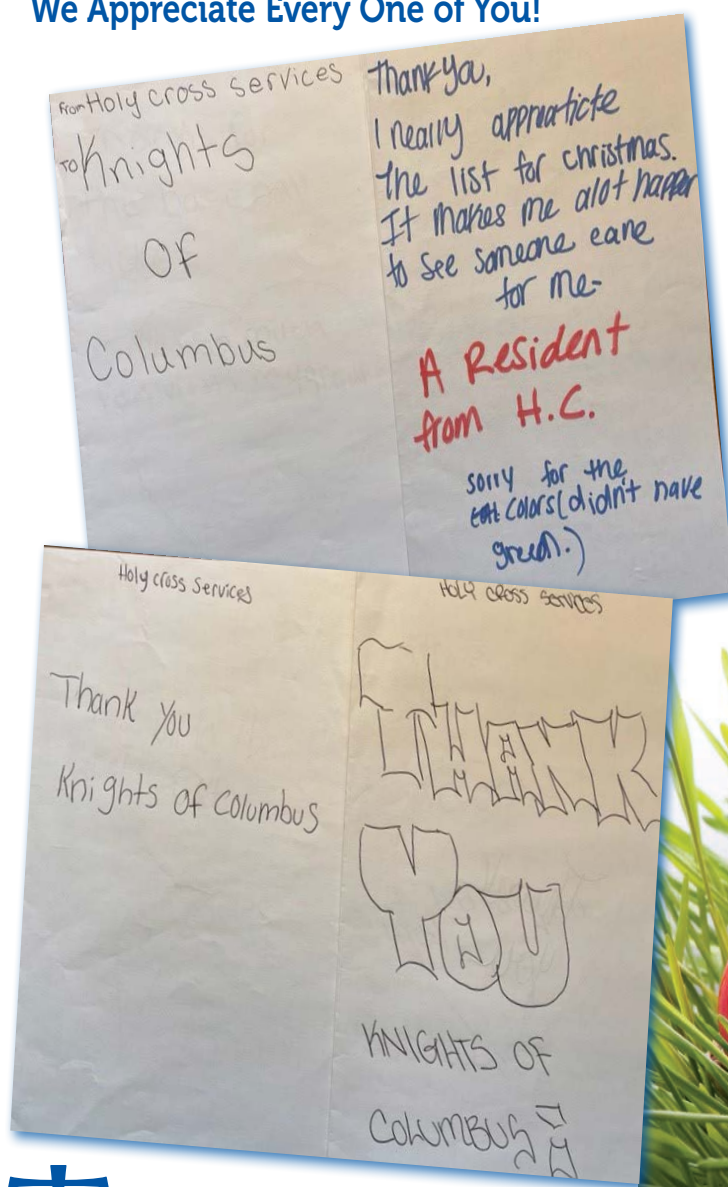 We Appreciate Every One of You!
From Holy cross services
To Knights
Of
Columbus
Thank you,
I really appreaticte
the list for christmas.
It makes me alot happer
to see someone care
for me-
A Resident
from H.C.
sorry for the
colors(didn't have
green.)
Holy cross Services
Thank you
Knights of Columbus
HOLY CROSS SERVICES
THANK
YOU
KNIGHTS OF
COLUMBUS